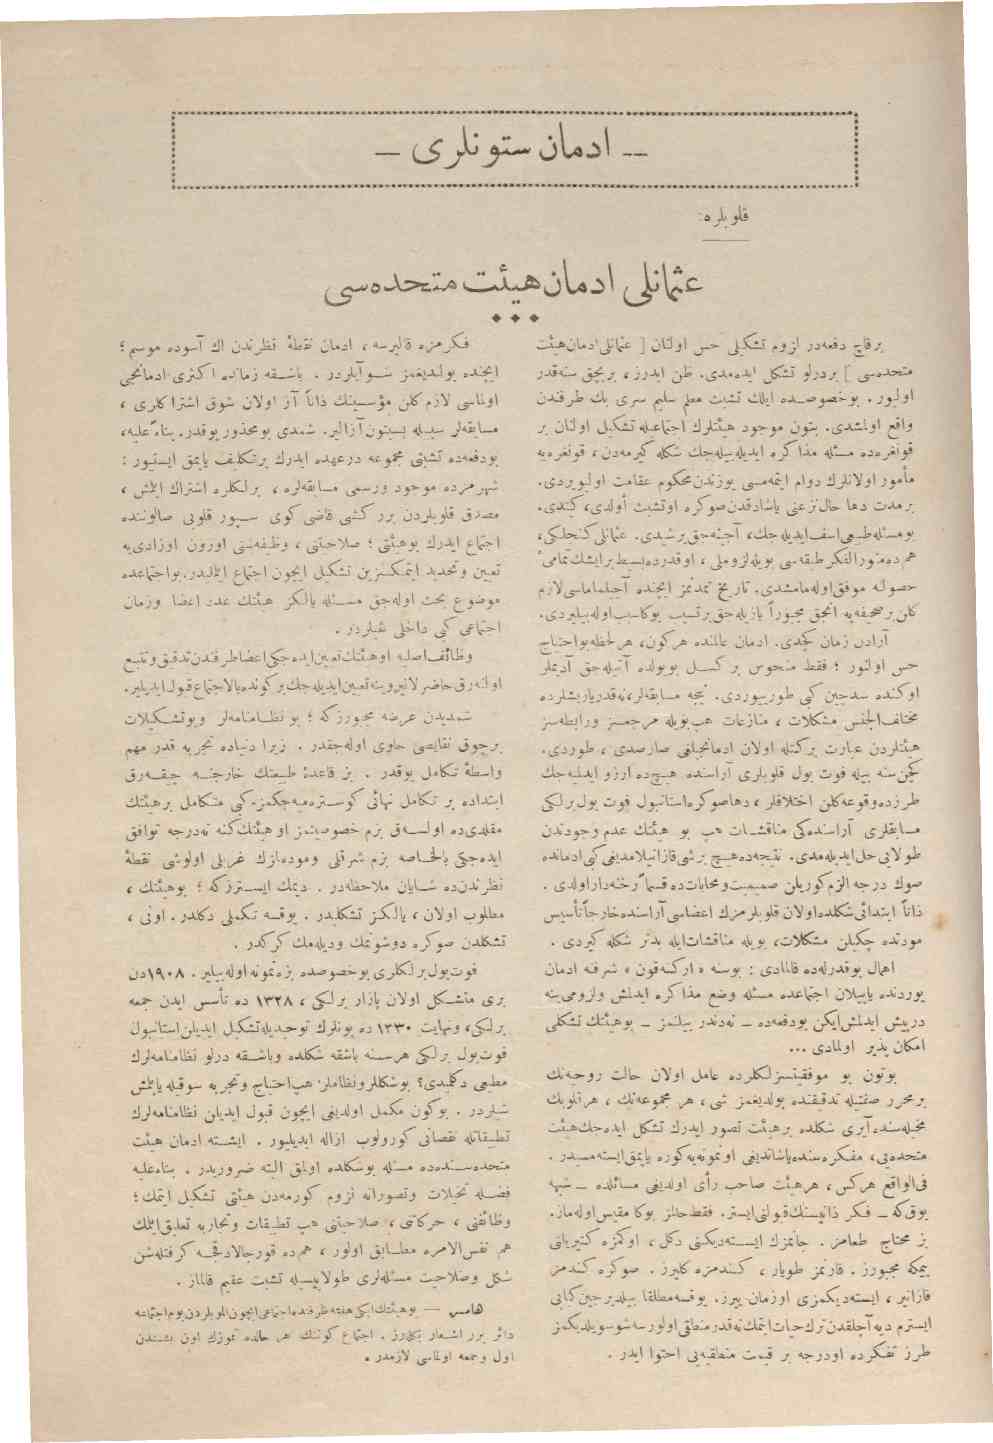 — ادمان ستونلری —
قلوبلره:
عثمانلی ادمان هیئت متحده‌سی
برقاچ دفعه‌در لزوم تشکیلی حس اولنان [ عثمانلی ادمان هیئت
متحده‌سی ] بردرلو تشکل ایده‌مدی. ظن ایدرز ، بربچق سنه‌قدر
اولیور . بوخصوصده ایلك تشبث معلم سلیم سری بك طرفندن
واقع اولمشدی. بتون موجود هیئتلرك اجتماعیله تشکیل اولنان بر
قونغره‌ده مسئله مذاکره ایدیله‌بیله‌جك شکله کیرمه‌دن ، قونغره‌یه
مأمور اولانلرك دوام ایتمه‌مسی یوزندن محکوم عقامت اولیویردی.
برمدت دها حال نزعنی یاشادقدن صوکره اوتشبث أولدی، کندی.
بومسئله طبعی اسف ایدیله‌جك، آجینه‌جق برشیدی. عثمانلی کنجلکی،
هم‌ده منورالفکر طبقه‌سی بویله لزوملی ، اوقدرده بسیط برایشك تمامیٔ
حصولنه موفق اوله‌مامشدی. تاریخ تمدنمز ایچنده آچیلماماسی لازم
کلن برصحیفه‌یه انجق مجبوراً یازیله‌جق برتسیب بوکا سبب اوله‌بیلیردی.
آرادن زمان کچدی. ادمان عالمنده هرکون، هر لحظه بواحتیاج
حس اولنیور ؛ فقط منحوس بر کسل بویولده آتیله‌جق آدیملر
اوکنده سدچین کبی طوریوردی. نیجه مسابقه‌لر، نه‌قدر یاریشلرده
مختلف‌الجنس مشکلات ، منازعات هپ بویله مرجعسز ورابطه‌سز
هیئتلردن عبارت برکتله اولان ادمانجیلغی صارصدی ، طوردی.
کچن سنه بیله فوت بول قلوبلری آراسنده هیچ‌ده آرزو ایدلمیه‌جك
طرزده وقوعه کلن اختلافلر ، دها صوکره استانبول فوت بول برلکی
مسابقلری آراسنده‌کی مناقشات هپ بو هیئتك عدم وجودندن
طولایی حل ایدیله‌مدی. نتیجه‌ده هیچ برشی قازانیلامدیغی کبی ادمانده
صوك درجه الزم کوریلن صمیمیت و محابات‌ده قسماً رخنه‌دار اولدی .
ذاتاً ابتدائی شکلده اولان قلوبلرمزك اعضاسی آراسنده خارجاً تأسیس
مودتده چکیلن مشکلات، بویله مناقشات ایله بدتر شکله کیردی .
اهمال بوقدرله‌ده قالمادی : بوسنه « ارکنه‌قون » شرفنه ادمان
یوردنده یاپیلان اجتماعده مسئله وضع مذاکره ایدلمش ولزومی ینه
درپیش ایدلمش ایکن بودفعه‌ده — نه‌دندر بیلنمز — بوهیئتك تشکلی
امکان پذیر اولمادی ...
بوتون بو موفقیتسزلکلرده عامل اولان حالت روحیه‌نك
برمحرر صفتیله تدقیقنده بولدیغمز شی ، هر مجموعه‌نك ، هر قلوبك
مخیله‌سنده آیری شکلده برهیئت تصور ایدرك تشکل ایده‌جك هیئت
متحده‌یی، مفکره‌سنده یاشاتدیغی او نمونه‌یه کوره یاپمق ایسته‌مسیدر .
فی‌الواقع هرکس ، هرهیئت صاحب رأی اولدیغی مسائلده — شبهه
یوق‌که — فکر ذاتیسنك قبولنی ایستر. فقط حالمز بوکا مقیس اوله‌ماز.
بز محتاج طعامز . جانمزك ایسته‌دیکنی دکل ، اوکمزه کتیریلنی
ییمکه مجبورز . قارنمز طویار ، کندمزه کلیرز . صوکره کندمز
قازانیر ، ایسته‌دیکمزی اوزمان ییرز. یوقسه مطلقا بیلدیرجین کبابی
ایسترم دیه آچلقدن ترك حیات ایتمك نه‌قدر منطقی اولورسه شو سویلدیکمز
طرز تفکرده اودرجه بر قیمت منطقیه‌یی احتوا ایدر .
فکرمزه قالیرسه ، ادمان نقطهٔ نظرندن اك آسوده موسم ؛
ایچنده بولندیغمز شو آیلردر . باشقه زمانده اکثری ادمانجی
اولماسی لازم کلن مؤسسینك ذاتاً آز اولان شوق اشتراکلری ،
مسابقه‌لر سببیله بسبتون آزالیر. شمدی بومحذور یوقدر. بناءً علیه،
بودفعه‌ده تشبثی مجموعه درعهده ایدرك برتکلیف یاپمق ایستیور :
شهرمزده موجود ورسمی مسابقه‌لره ، برلکلره اشتراك ایتمش ،
مصدق قلوبلردن برر کشی قاضی کوی سپور قلوبی صالوننده
اجتماع ایدرك بوهیئتی ؛ صلاحیتنی ، وظیفه‌سنی اوزون اوزادی‌یه
تعیین وتحدید ایتمکسزین تشکیل ایچون اجتماع ایتملیدر. بواجتماعده
موضوع بحث اوله‌جق مسئله یالکز هیئتك عدد اعضا وزمان
اجتماعی کبی داخلی شیلردر .
وظائف اصلیه او هیئتك تعیین ایده‌جکی اعضا طرفندن تدقیق و تتبع
اولنه‌رق حاضرلانیر وینه تعیین ایدیله‌جك برکونده بالاجتماع قبول ایدیلیر.
شمدیدن عرضه مجبورزکه ؛ بو نظامنامه‌لر وبوتشکیلات
برچوق نقایصی حاوی اوله‌جقدر . زیرا دنیاده تجربه قدر مهم
واسطهٔ تکامل یوقدر . بز قاعدهٔ طبیعتك خارجنه چیقه‌رق
ابتداده بر تکامل نهائی کوستره‌میه‌جکمز کبی متکامل برهیئتك
مقلدی‌ده اولسه‌ق بزم خصوصیتمز او هیئتك‌کنه نه‌درجه توافق
ایده‌جکی بالخاصه بزم شرقلی ومودولزك غربلی اولوشی نقطهٔ
نظرندن‌ده شایان ملاحظه‌در . دیمك ایسترزکه ؛ بوهیئتك ،
مطلوب اولان ، یالکز تشکلیدر . یوقسه تکملی دکلدر. اونی ،
تشکلدن صوکره دوشونمك ودیله‌مك کرکدر .
فوت بول برلکلری بوخصوصده بزه نمونه اوله‌بیلیر . ۱۹۰۸ دن
بری متشکل اولان پازار برلکی ، ۱۳۲۸ ده تأسس ایدن جمعه
برلکی، ونهایت ۱۳۳۰ ده بونلرك توحیدیله تشکیل ایدیلن استانبول
فوت بول برلکی هرسنه باشقه شکلده وباشقه درلو نظامنامه‌لرك
مطیعی دکلمیدی؟ بوشکللر ونظاملر هپ احتیاج وتجربه سوقیله یاپلمش
شیلردر . بوکون مکمل اولدیغی ایچون قبول ایدیلن نظامنامه‌لرك
تطبیقاتله نقصانی کورولوب ازاله ایدیلیور . ایشته ادمان هیئت
متحده‌سنده‌ده مسئله بوشکلده اولمق البته ضروریدر . بناءعلیه
فضله تخیلات وتصوراته لزوم کورمه‌دن هیئتی تشکیل ایتمك ؛
وظائفنی ، حرکاتنی ، صلاحیتنی هپ تطبیقات وتجاربه تعلیق ایتمك
هم نفس‌الامره مطابق اولور ، هم‌ده قورجالادقجه کرفتله‌شن
شکل وصلاحیت مسئله‌لری طولاییسیله تشبث عقیم قالماز .
هامس — بوهیئتك ایکی هفته ظرفنده اجتماعی ایچون قلوبلردن یوم اجتماعه
دائر برر اشعار بکلرز . اجتماع کوننك هر حالده تموزك اون بشندن
اول وجمعه اولماسی لازمدر .